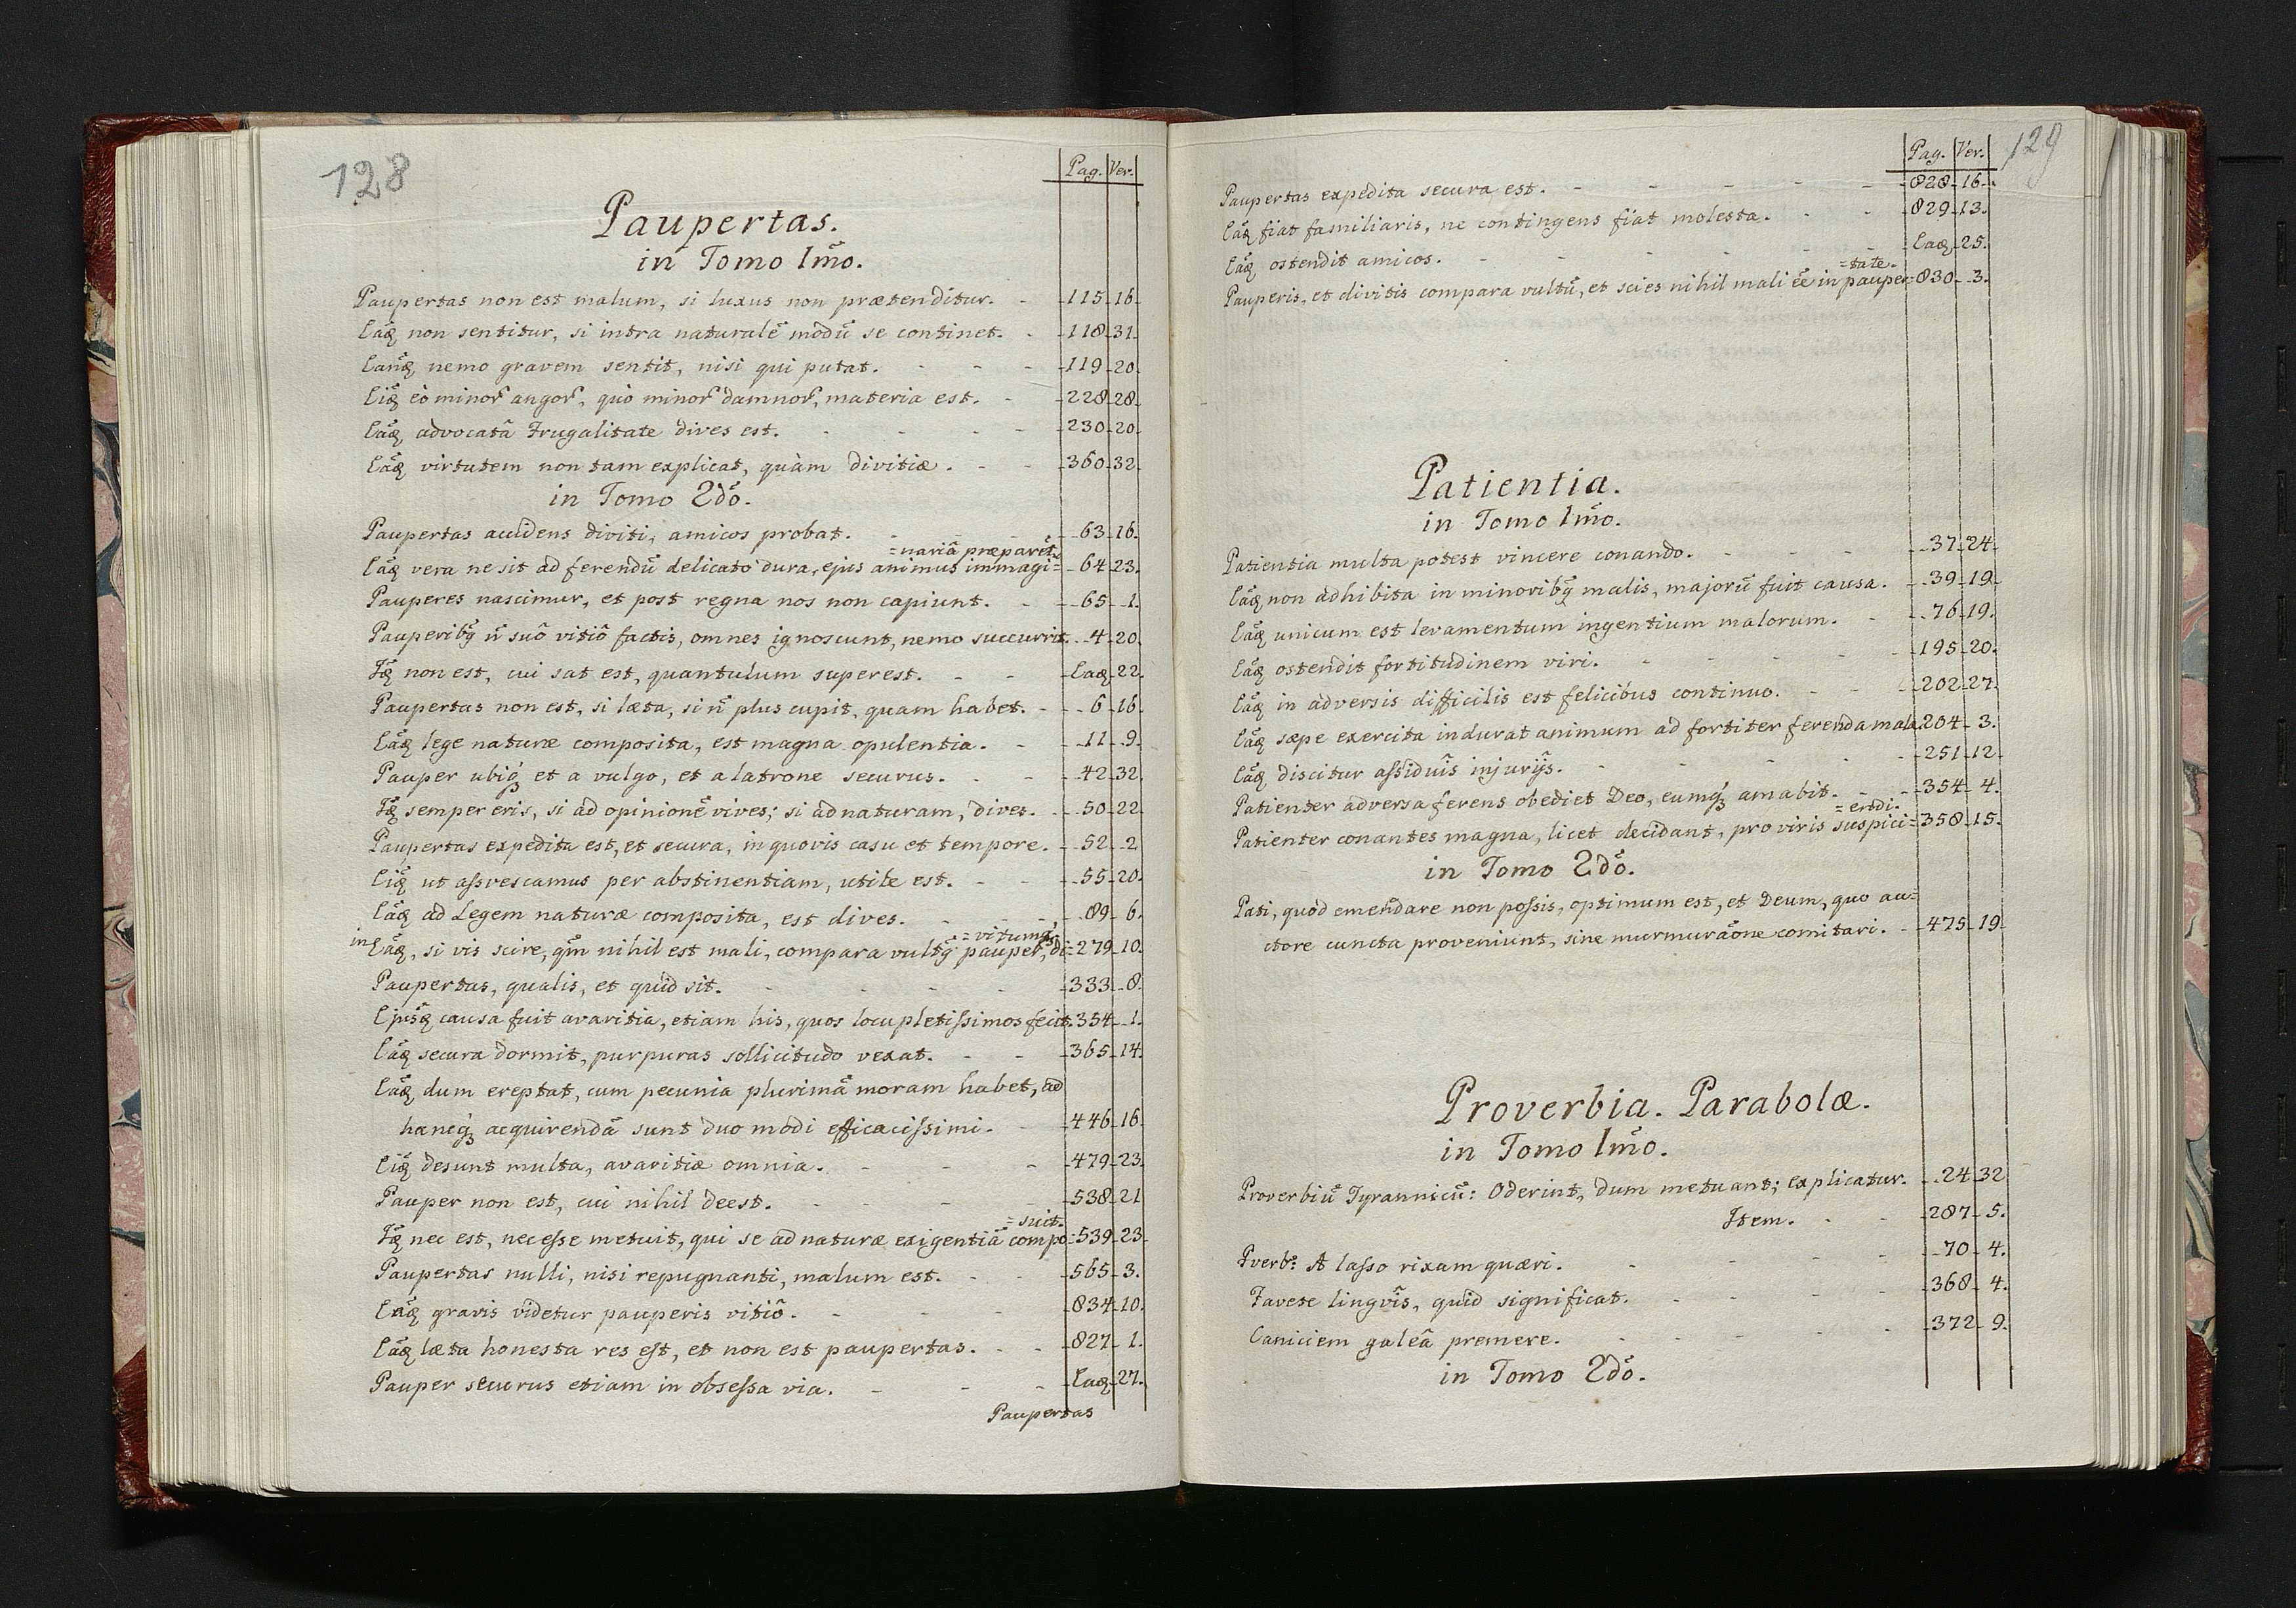 128
Pag. Ver.
Paupertas.
in Tomo Imo.
Paupertas non est malum, si luxus non prætenditur. - 115 16.
Eãq non sentitur, si intra naturalẽ modũ se continet. - 118 31.
Eanq nemo gravem sentit, nisi qui putat. - - - 119 20.
Eiq eò minor angor, quò minor damnor, materia est. - 228 28.
Eãq advocatâ Frugalitate dives est. - - - - 230 20.
Eãq virtutem non tam explicat, quàm divitiæ. - - 360 32.
in Tomo 2do.
Paupertas accidens diviti, amicos probat. - - - 63 16.
=nariâ præparet.
Eãq vera ne sit ad ferendũ delicato dura, ejus animus immagi= 64 23.
Pauperes nascimur, et post regna nos non capiunt. - 65 1.
Pauperibq ñ suô vitiô factis, omnes ignoscunt, nemo succurrit. 4 20.
Iq non est, cui sat est, quantulum superest. - - Eaq 22.
Paupertas non est, si læta, si ñ plus cupit, quam habet. - 6 16.
Eãq lege naturæ composita, est magna opulentia. - 11 9.
Pauper ubiq et a vulgo, et a latrone securus. - - 42 32.
Iq semper eris, si ad opinionẽ vives; si ad naturam, dives. - 50 22.
Paupertas expedita est, et secura, in quovis casu et tempore. - 52 2
Eiq ut assvescamus per abstinentiam, utile est. - - 55 20.
Eãq ad Legem naturæ composita, est dives. - - - 89 6.
=vitumq
in Eãq, si vis scire, qm nihil est mali, compara vultq pauper, di= 279 10.
Paupertas, qualis, et quid sit. - - - - 333 8.
Ejusq causa fuit avaritia, etiam his, quos locupletissimos fecit. 354 1.
Eãq secura dormit, purpuras sollicitudo vexat. - - 365 14.
Eãq dum ereptat, cum pecunia plurimã moram habet, ad
hancq acquirendã sunt duo modi efficacissimi. - 446 16.
Eiq desunt multa, avaritiæ omnia. - - - 479 23.
Pauper non est, cui nihil deest. - - - - 538 21
=suit.
Iq nec est, nec esse metuit, qui se ad naturæ exigentiã compo= 539 23.
Paupertas nulli, nisi repugnanti, malum est. - - 565 3.
Eãq gravis videtur pauperis vitiô. - - - - 834 10.
Eãq læta honesta res est, et non est paupertas. - - 827 1.
Pauper securus etiam in obsessa via. - - - Eaq 27.
Paupertas
129
Pag. Ver.
Paupertas expedita secura est. - - - - - 828 16.
Eãq fiat familiaris, ne contingens fiat molesta. - - 829 13.
Eãq ostendit amicos. - - - - - - Eaq 25.
=tate.
Pauperis, et divitis compara vultũ, et scies nihil mali eẽ in pauper= 830 3.
Patientia.
in Tomo Imo.
Patientia multa potest vincere conando. - - - 37 24.
Eãq non adhibita in minoribq malis, majorũ fuit causa. - 39 19.
Eãq unicum est levamentum ingentium malorum. - 76 19.
Eãq ostendit fortitudinem viri. - - - - - 195 20.
Eãq in adversis difficilis est felicibus continuo. - - - 202 27.
Eãq sæpe exercita indurat animum ad fortiter ferenda mala 204 3.
Eãq discitur assiduîs injurijs. - - - - - 251 12.
Patienter adversa ferens obediet Deo, eumq amabit. - - 354 4.
=endi.
Patienter conantes magna, licet decidant, pro viris suspici= 358 15.
in Tomo 2do.
Pati, quod emendare non possis, optimum est, et Deum, quo au=
ctore cuncta proveniunt, sine murmuraõne comitari. - 475 19.
Proverbia. Parabolæ.
in Tomo Imo.
Proverbiũ Tyrannicũ: Oderint, dum metuant; explicatur. 24 32
Item. - - 287 5.
Pverb: A lasso rixam quæri. - - - - - 70 4.
Favete lingvîs, quid significat. - - - - 368 4.
Caniciem galeâ premere. - - - - - 372 9.
in Tomo 2do.